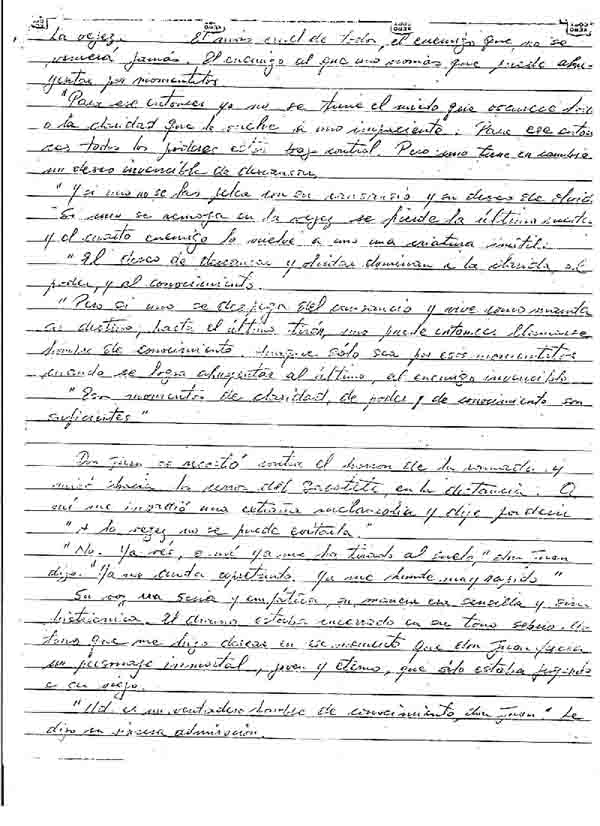 La vejez. El más cruel de todos, el enemigo que no se
vencerá jamás. El enemigo al que uno nomás que puede ahu-
yentar por momentitos.
"Para ese entonces ya no se tiene el miedo que oscurece
o la claridad que lo vuelve a uno impaciente. Para ese enton
ces todos los poderes están bajo control. Pero uno tiene en cambio
un deseo invencible de descansar.
"Y si uno no se las pelea con su cansancio y su deseo de olvido
Si uno se remoja en la vejez se pierde la última
y el cuarto enemigo lo vuelve a uno una criatura inútil.
"El deseo de descansar y olvidar dominan a la claridad, al
poder, y al conocimiento.
"Pero si uno se despega del cansancio y vive como manda
su destino, hasta el último tirón, uno puede entonces llamarse
hombre de conocimiento. Aunque sólo sea por esos momentitos
cuando se logra ahuyentar al último, al enemigo invencible
"Esos momentos de claridad, de poder y de conocimiento son
suficientes"
Don Juan se recostó contra el horcón de la ramada y
miró hacia la cima del en la distancia. A
mí me invadió una extraña melancolía y dije por decir
"A la vejez no se puede evitarla."
"No. Ya ves, a mí ya me ha tirado al suelo," don Juan
dijo. "Ya me anda apretando. Ya me hunde muy rapido"
Su voz era seria y enfática, su manera era sencilla y sin
histriónica. El drama estaba encerrado en su tono sobrio. Un
tono que me hizo desear en ese momento que don Juan fuera
un personaje inmortal, joven y eterno, que sólo estaba jugando
a ser viejo.
"Ud. es un verdadero hombre de conocimiento, don Juan" le
dije en sincera admiración.